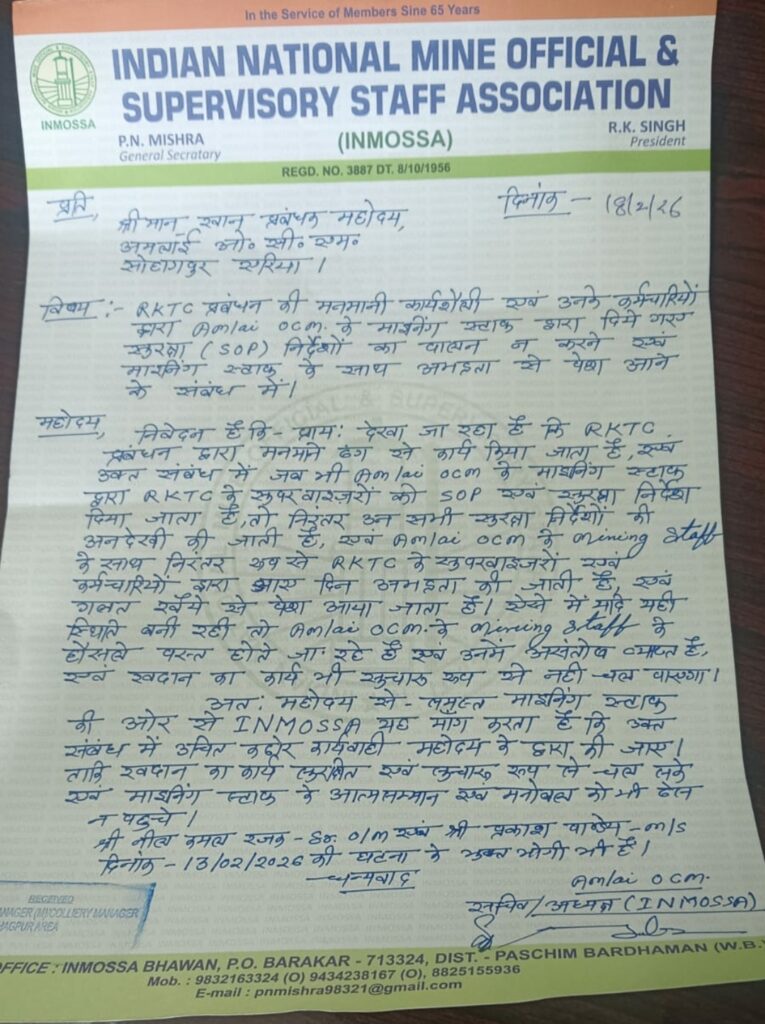 In the Service of Members Sine 65 Years
INDIAN NATIONAL MINE OFFICIAL &
SUPERVISORY STAFF ASSOCIATION
INMOSSA
(INMOSSA)
P.N. MISHRA
General Secratary
R.K. SINGH
President
REGD. NO. 3887 DT. 8/10/1956
प्रति,
दिनांक - 18/2/26
श्रीमान् खान प्रबंधक महोदय,
अमलाई ओ० सी० एम०
सोहागपुर एरिया ।
विषय :- RKTC प्रबंधन की मनमानी कार्यशैली एवं उनके कर्मचारियों
द्वारा Amlai OCM. के माइनिंग स्टाफ द्वारा दिये गए
सुरक्षा (SOP) निर्देशों का पालन न करने एवं
माइनिंग स्टाफ के साथ अभद्रता से पेश आने
के संबंध में।
महोदय,
निवेदन है कि - प्राय: देखा जा रहा है कि RKTC
प्रबंधन द्वारा मनमाने ढंग से कार्य किया जाता है, एवं
उक्त संबंध में जब भी Amlai OCM के माइनिंग स्टाफ
द्वारा RKTC के सुपरवाइजरों को SOP एवं सुरक्षा निर्देश
दिया जाता है, तो निरंतर उन सभी सुरक्षा निर्देशों की
अनदेखी की जाती है, एवं Amlai OCM के Mining Staff
के साथ निरंतर रूप से RKTC के सुपरवाइजरों एवं
कर्मचारियों द्वारा आए दिन अभद्रता की जाती है, एवं
गलत रवैये से पेश आया जाता है। ऐसे में यदि यही
स्थिति बनी रही तो Amlai OCM. के Mining Staff के
हौसले पस्त होते जा रहे हैं एवं उनमे असंतोष व्याप्त है,
एवं खदान का कार्य भी सुचारू रूप से नही चल पाएगा।
अत: महोदय से - समस्त माइनिंग स्टाफ
की ओर से INMOSSA यह मांग करता है कि उक्त
संबंध में उचित कठोर कार्यवाही महोदय के द्वारा की जाए।
ताकि खदान का कार्य सुरक्षित एवं सुचारू रूप से चल सके
एवं माइनिंग स्टाफ के आत्मसम्मान एवं मनोबल को भी ठेस
न पहुचे।
श्री नील कमल रजक - Sr. O/M एवं श्री प्रकाश पाण्डेय - M/S
दिनांक - 13/02/2026 की घटना के भुक्त भोगी भी हैं।
धन्यवाद
Amlai OCM.
सचिव/अध्यक्ष (INMOSSA)
RECEIVED
MANAGER (M)COLLIERY MANAGER
AREA
OFFICE : INMOSSA BHAWAN, P.O. BARAKAR - 713324, DIST. - PASCHIM BARDHAMAN (W.B.)
Mob. : 9832163324 (O) 9434238167 (O), 8825155936
E-mail : pnmishra98321@gmail.com